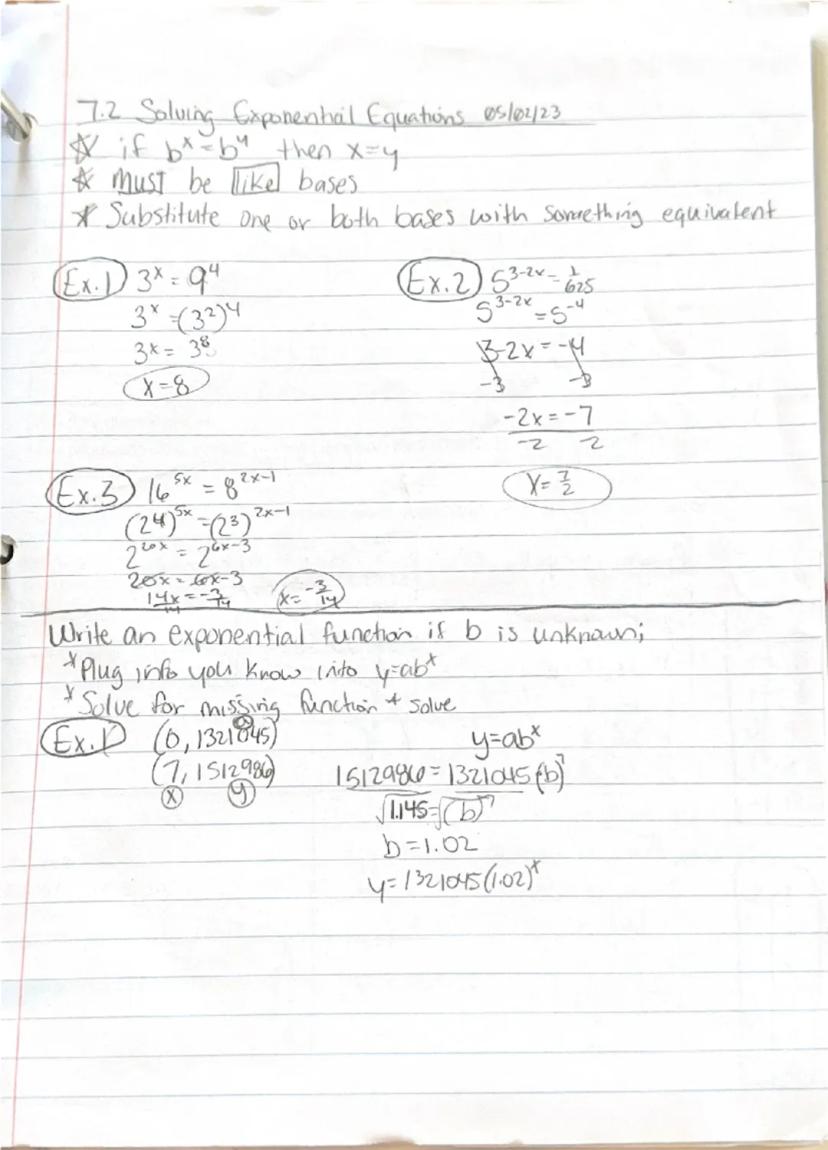 7.2 Solving Exponential Equations 05/02/23
☆ if bˣ = bʸ then x=y
☆ MUST be like bases
* Substitute one or both bases with something equivalent
Ex.1 3ˣ = 9⁴
3ˣ = (3²)⁴
3ˣ = 3⁸
x=8
Ex.2 5³⁻²ˣ = 1/625
5³⁻²ˣ = 5⁻⁴
3-2x = -4
-3 -3
-2x = -7
-2 -2
x = 7/2
Ex.3 16⁵ˣ = 8²ˣ⁻¹
(2⁴)⁵ˣ = (2³)²ˣ⁻¹
2²⁰ˣ = 2⁶ˣ⁻³
20x = 6x-3
14x = -3
14 14
x = -3/14
Write an exponential function if b is unknown;
* Plug info you know into y=abˣ
* Solve for missing function + solve
Ex.1 (0, 1321045)
(7, 1512986)
x y
y=abˣ
1512986 = 1321045 (b)⁷
√1.145 = √(b)⁷
b = 1.02
y = 1321045(1.02)ˣ